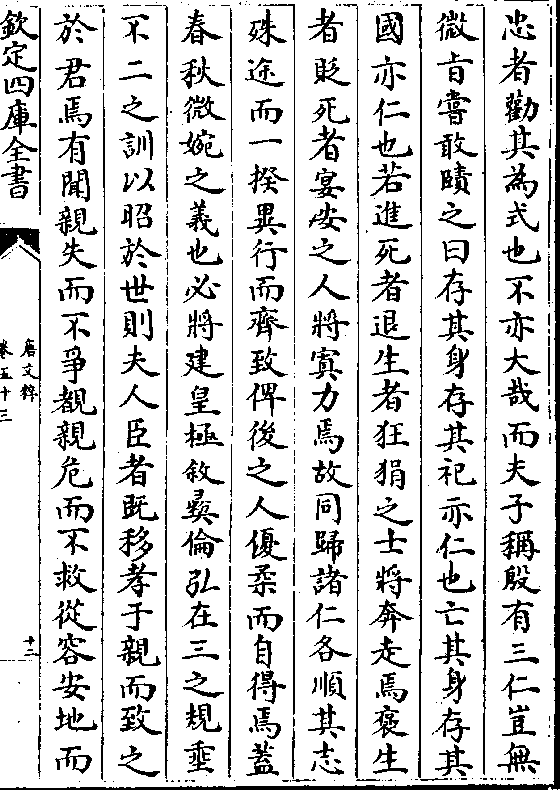 忠者勸其為式也不亦大哉而夫子稱殷有三仁豈無
微㫖嘗敢賾之曰存其身存其祀亦仁也亡其身存其
國亦仁也若進死者退生者狂狷之士將奔走焉褒生
者貶死者宴安之人將寘力焉故同歸諸仁各順其志
殊途而一揆異行而齊致俾後之人優柔而自得焉蓋
春秋微婉之義也必將建皇極敘彞倫弘在三之規垂
不二之訓以昭於世則夫人臣者既移孝于親而致之
於君焉有聞親失而不爭覩親危而不救從容安地而
欽定四庫全書
唐文粹
卷五十三
十二